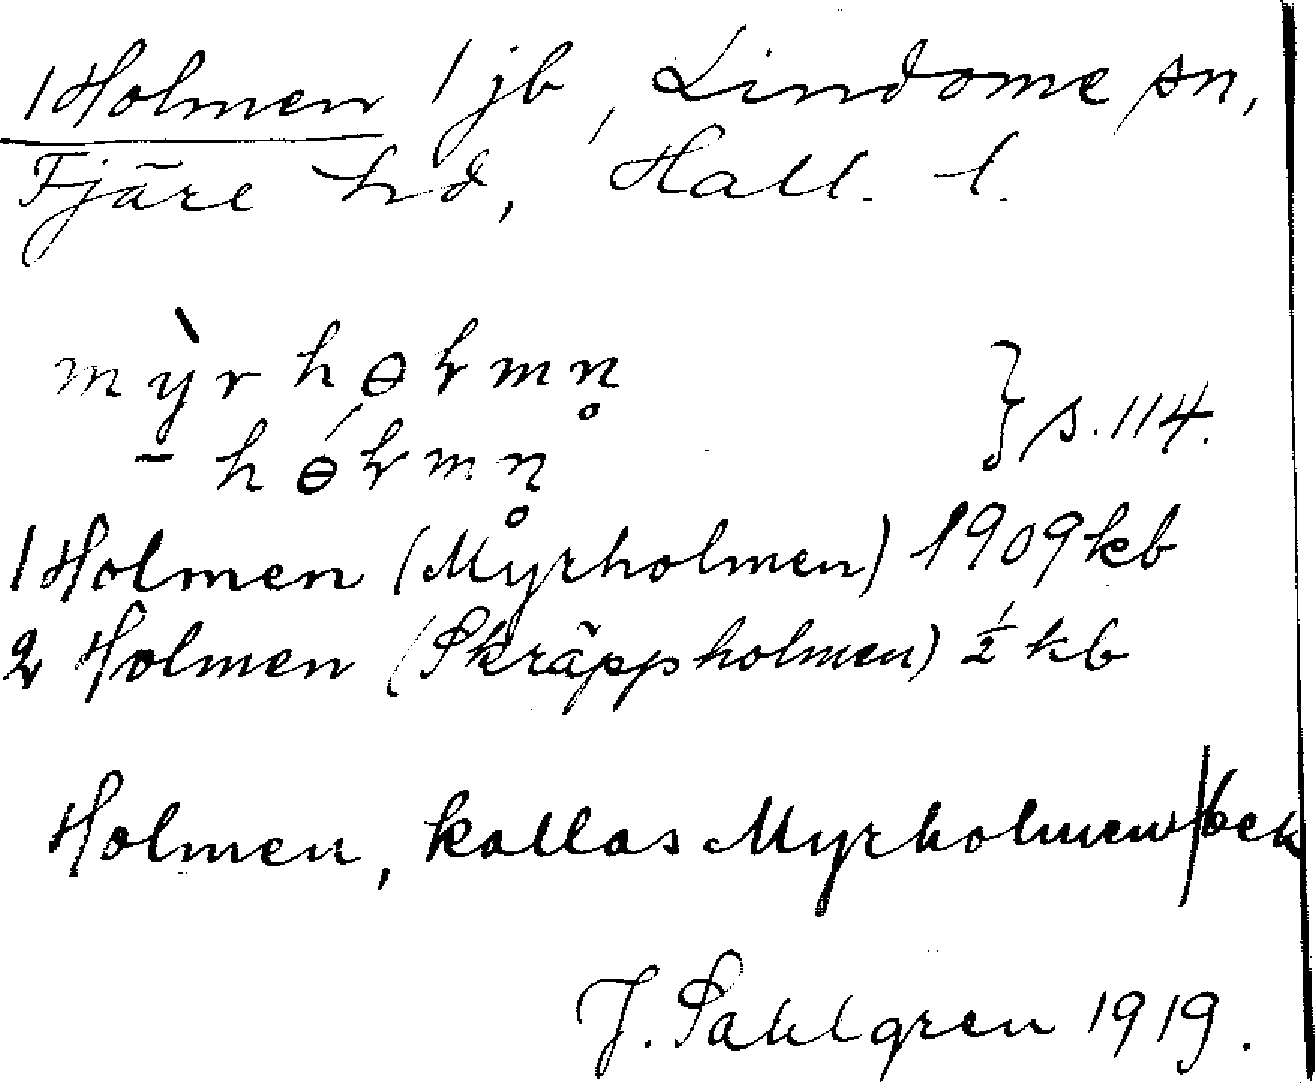 1 Holmen 1 jb, Lindome sn,
Fjäre hd, Hall. l.
mỳrhɵɫmn̥
- hɵ́ɫmn̥ } s. 114.
1 Holmen (Myrholmen) 1909 kb
2 Holmen (Skräppholmen) ½ kb
Holmen, kallas Myrholmen
J. Sahlgren 1919.